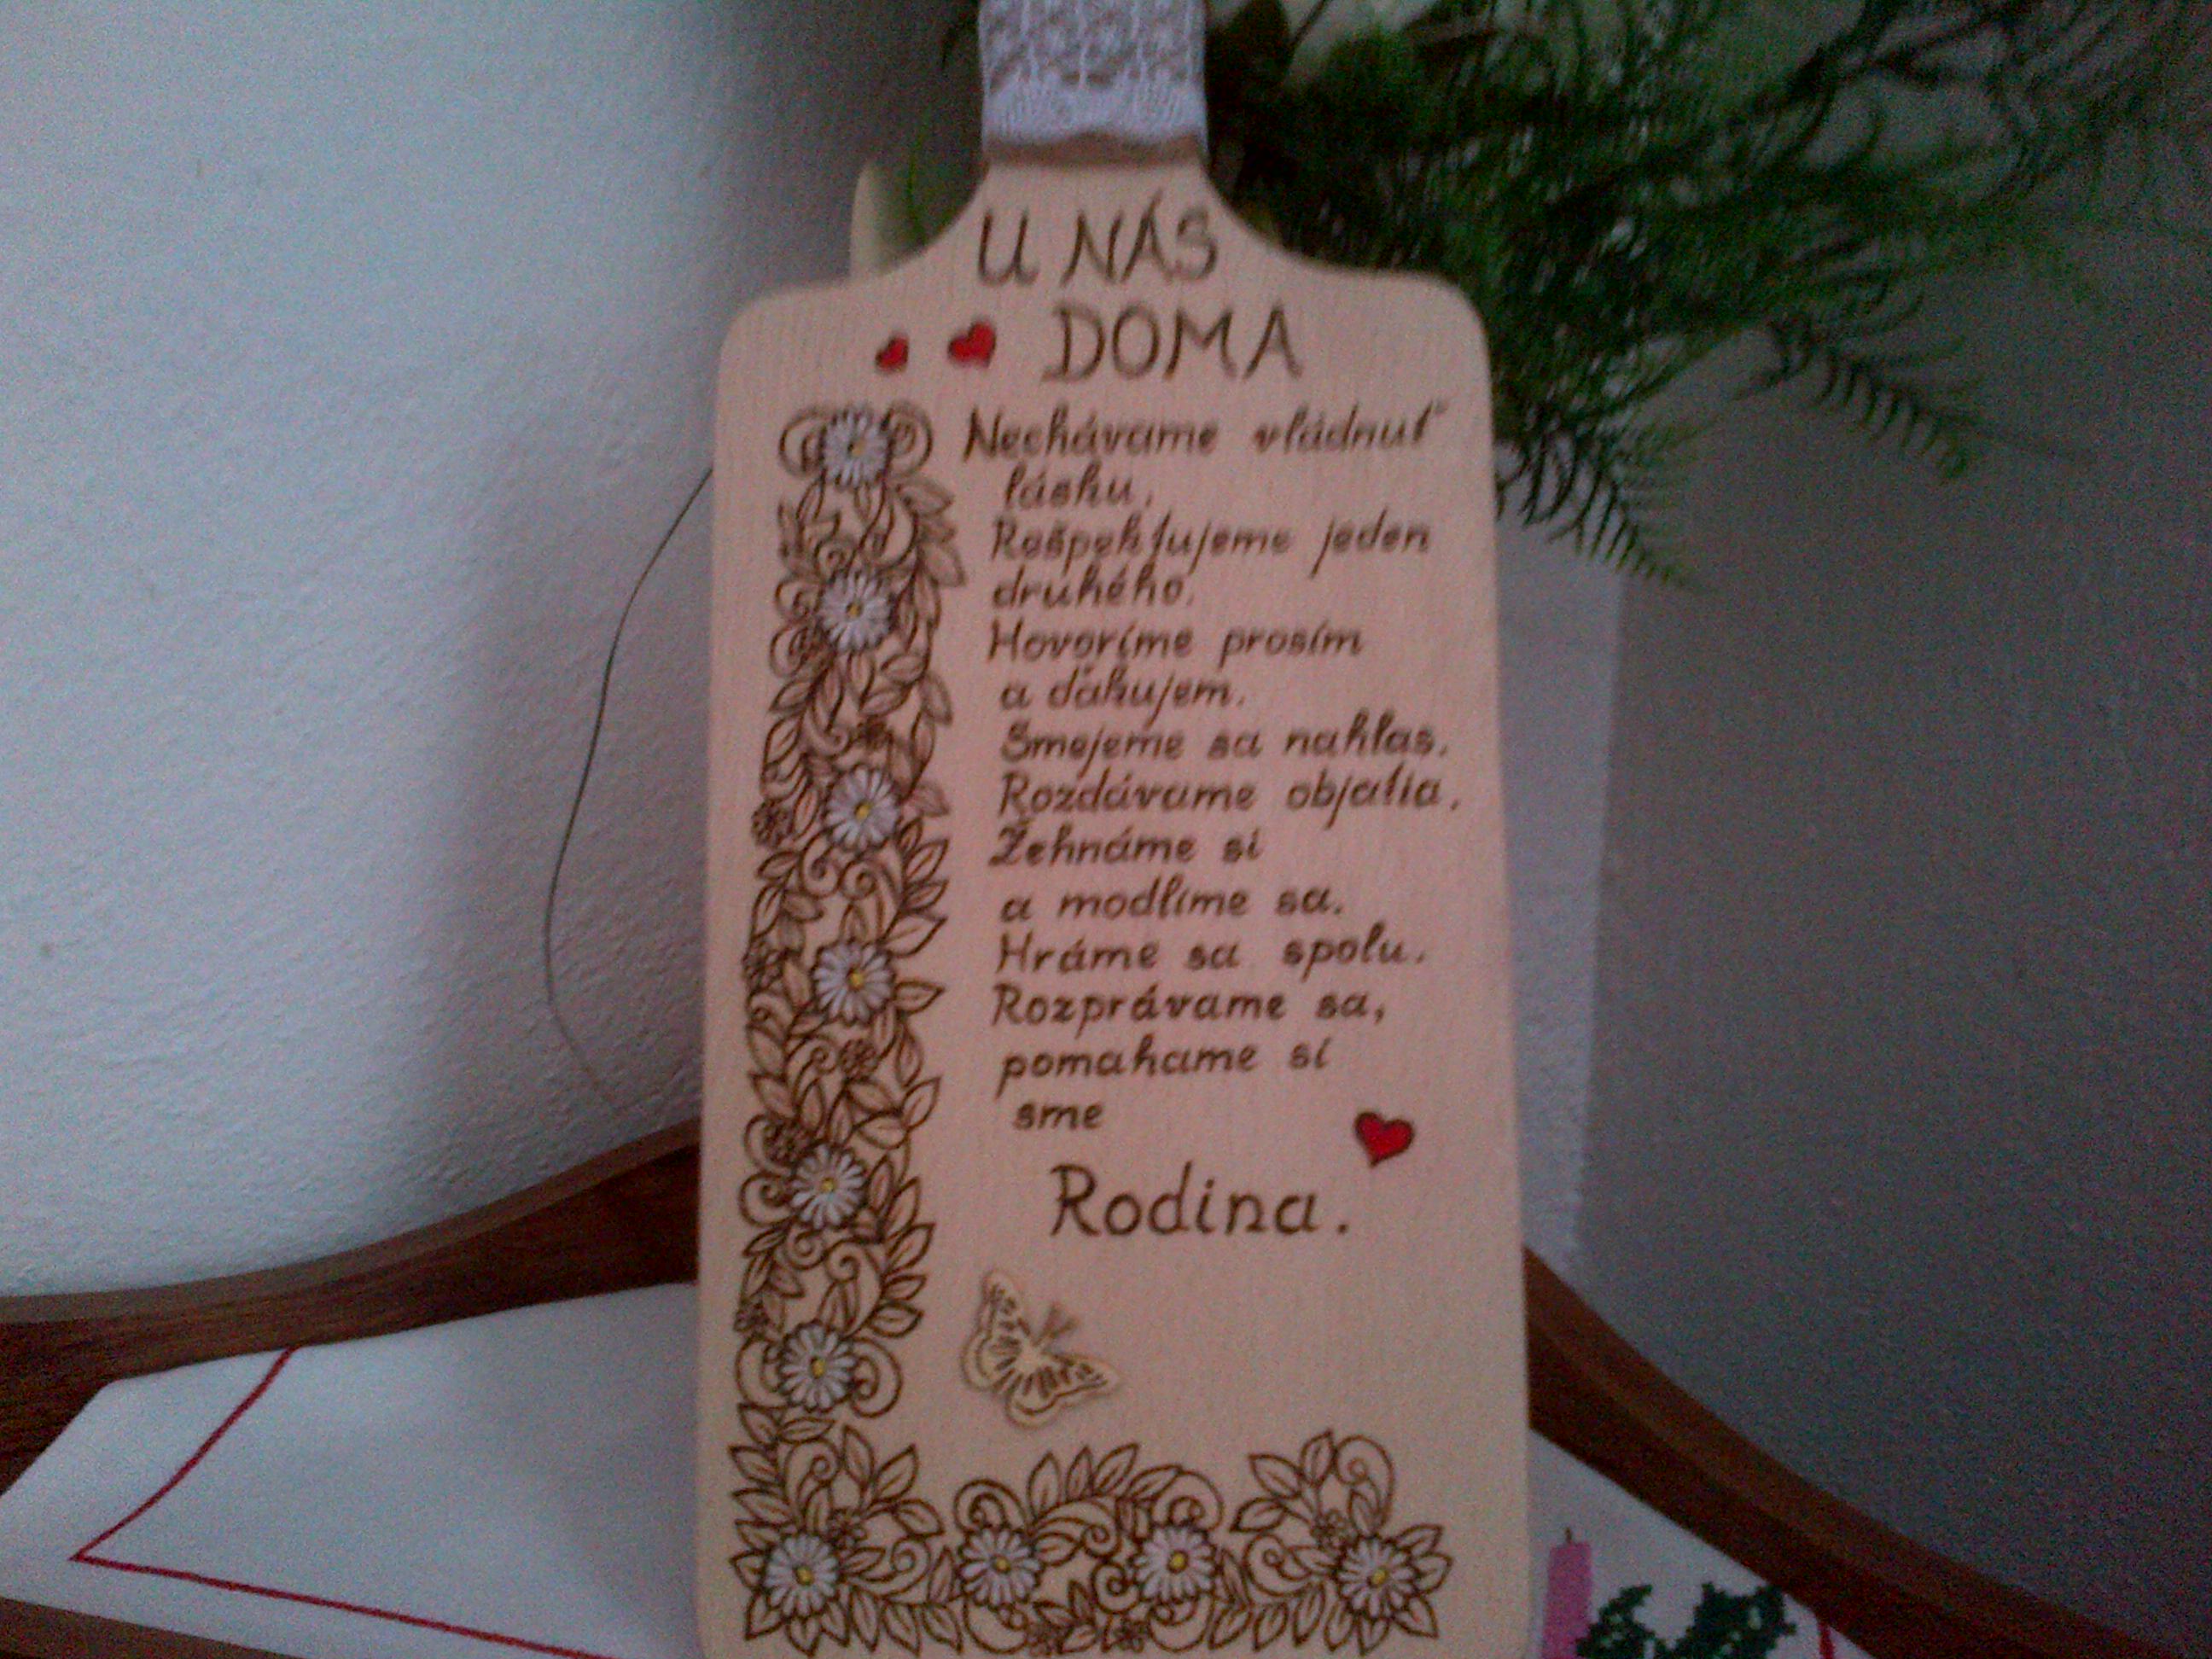 U NÁS
DOMA
Nechávame vládnuť
lásku,
Rešpektujeme jeden
druhého,
Hovoríme prosím
a ďakujem.
Smejeme sa nahlas.
Rozdávame objatia.
Žehnáme si
a modlíme sa.
Hráme sa spolu.
Rozprávame sa,
pomahame si
sme
Rodina.